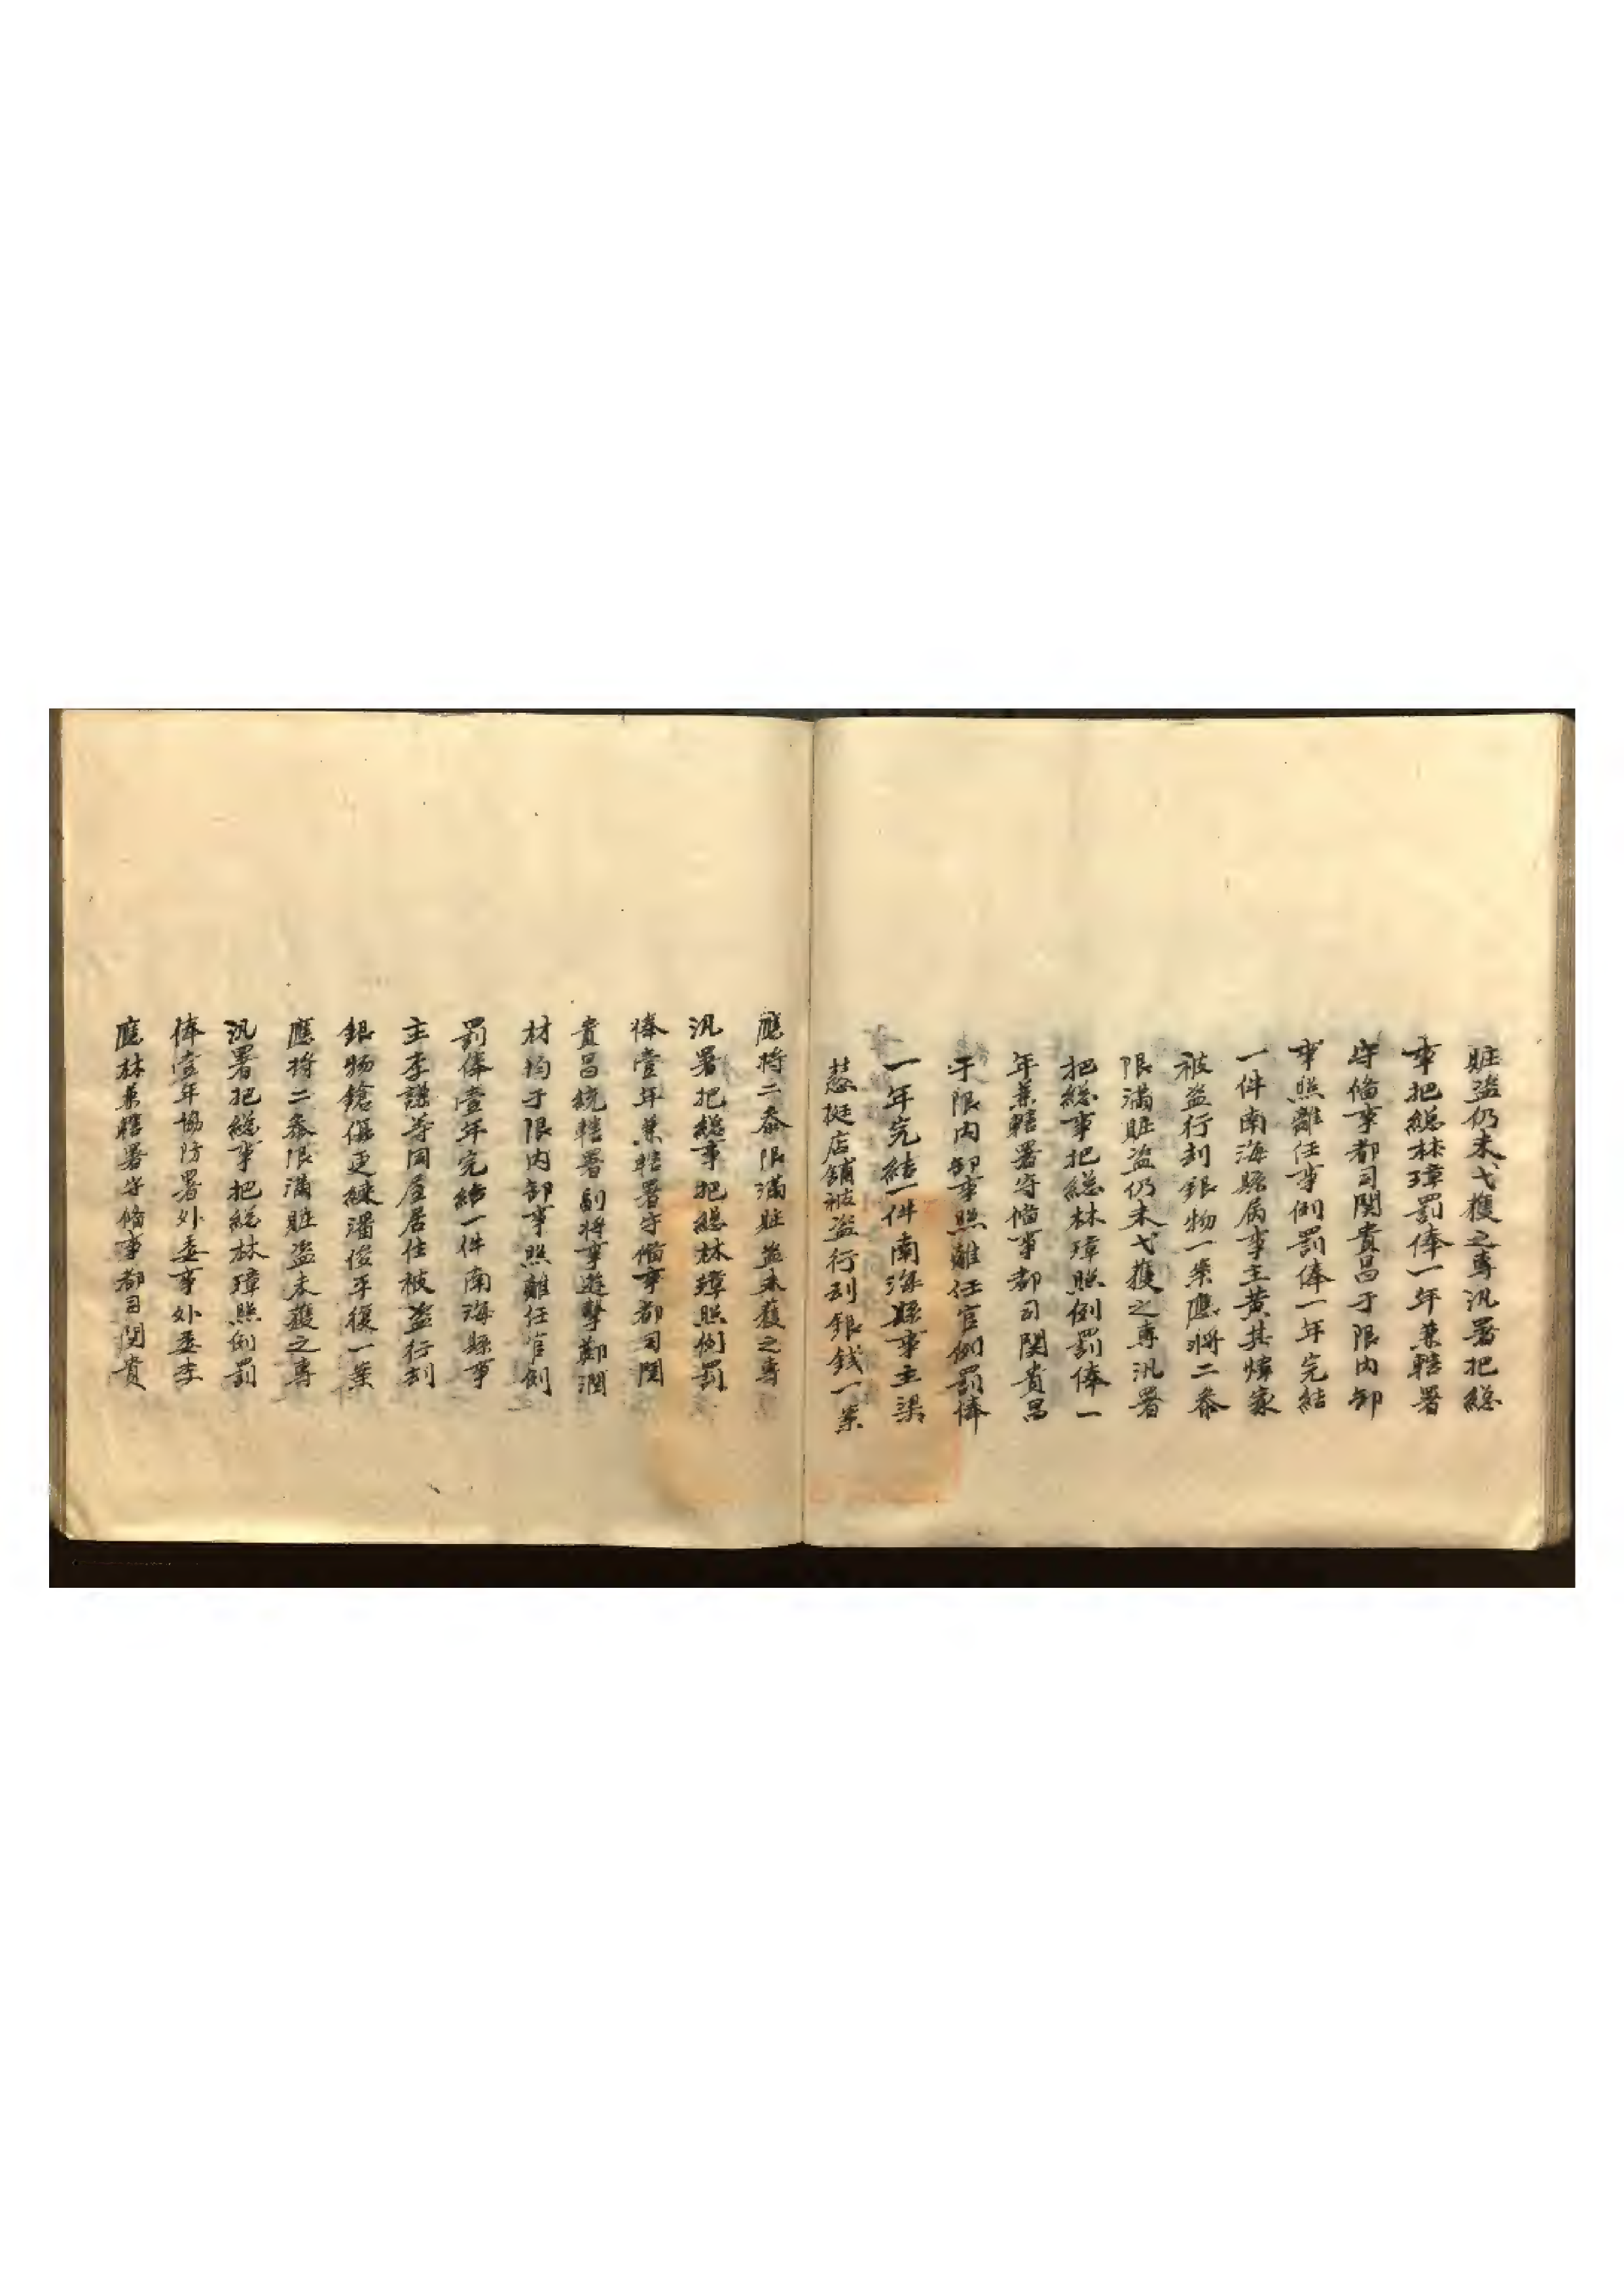 賍盗仍未弋獲之專汛署把総
事把総林璋罰俸一年兼轄署
守俻事都司関貴昌于限内卸
事照離任事例罰俸一年完結
一件南海縣属事主黄其煒家
被盗行刦銀物一案應將二叅
限滿賍盗仍未弋獲之專汛署
把総事把総林璋照例罰俸一
年兼轄署守俻事都司関貴昌
于限内卸事照離任官例罰俸
一年完結一件南海縣事主梁
挺店舖被盗行刦銀銭一案
應將二叅限滿賍盗未獲之專
汛署把総事把総林璋照例罰
俸壹年兼轄署守俻事都司関
貴昌統轄署副將事遊擊鄭潤
材均于限内卸事照離任官例
罰俸壹年完結一件南海縣事
主李謙等同屋居住被盗行刦
銀物鎗傷更練潘俊平復一案
應將二叅限滿賍盗未獲之專
汛署把総事把総林璋照例罰
俸壹年協防署外委事外委李
應林兼轄署守俻事都司関貴